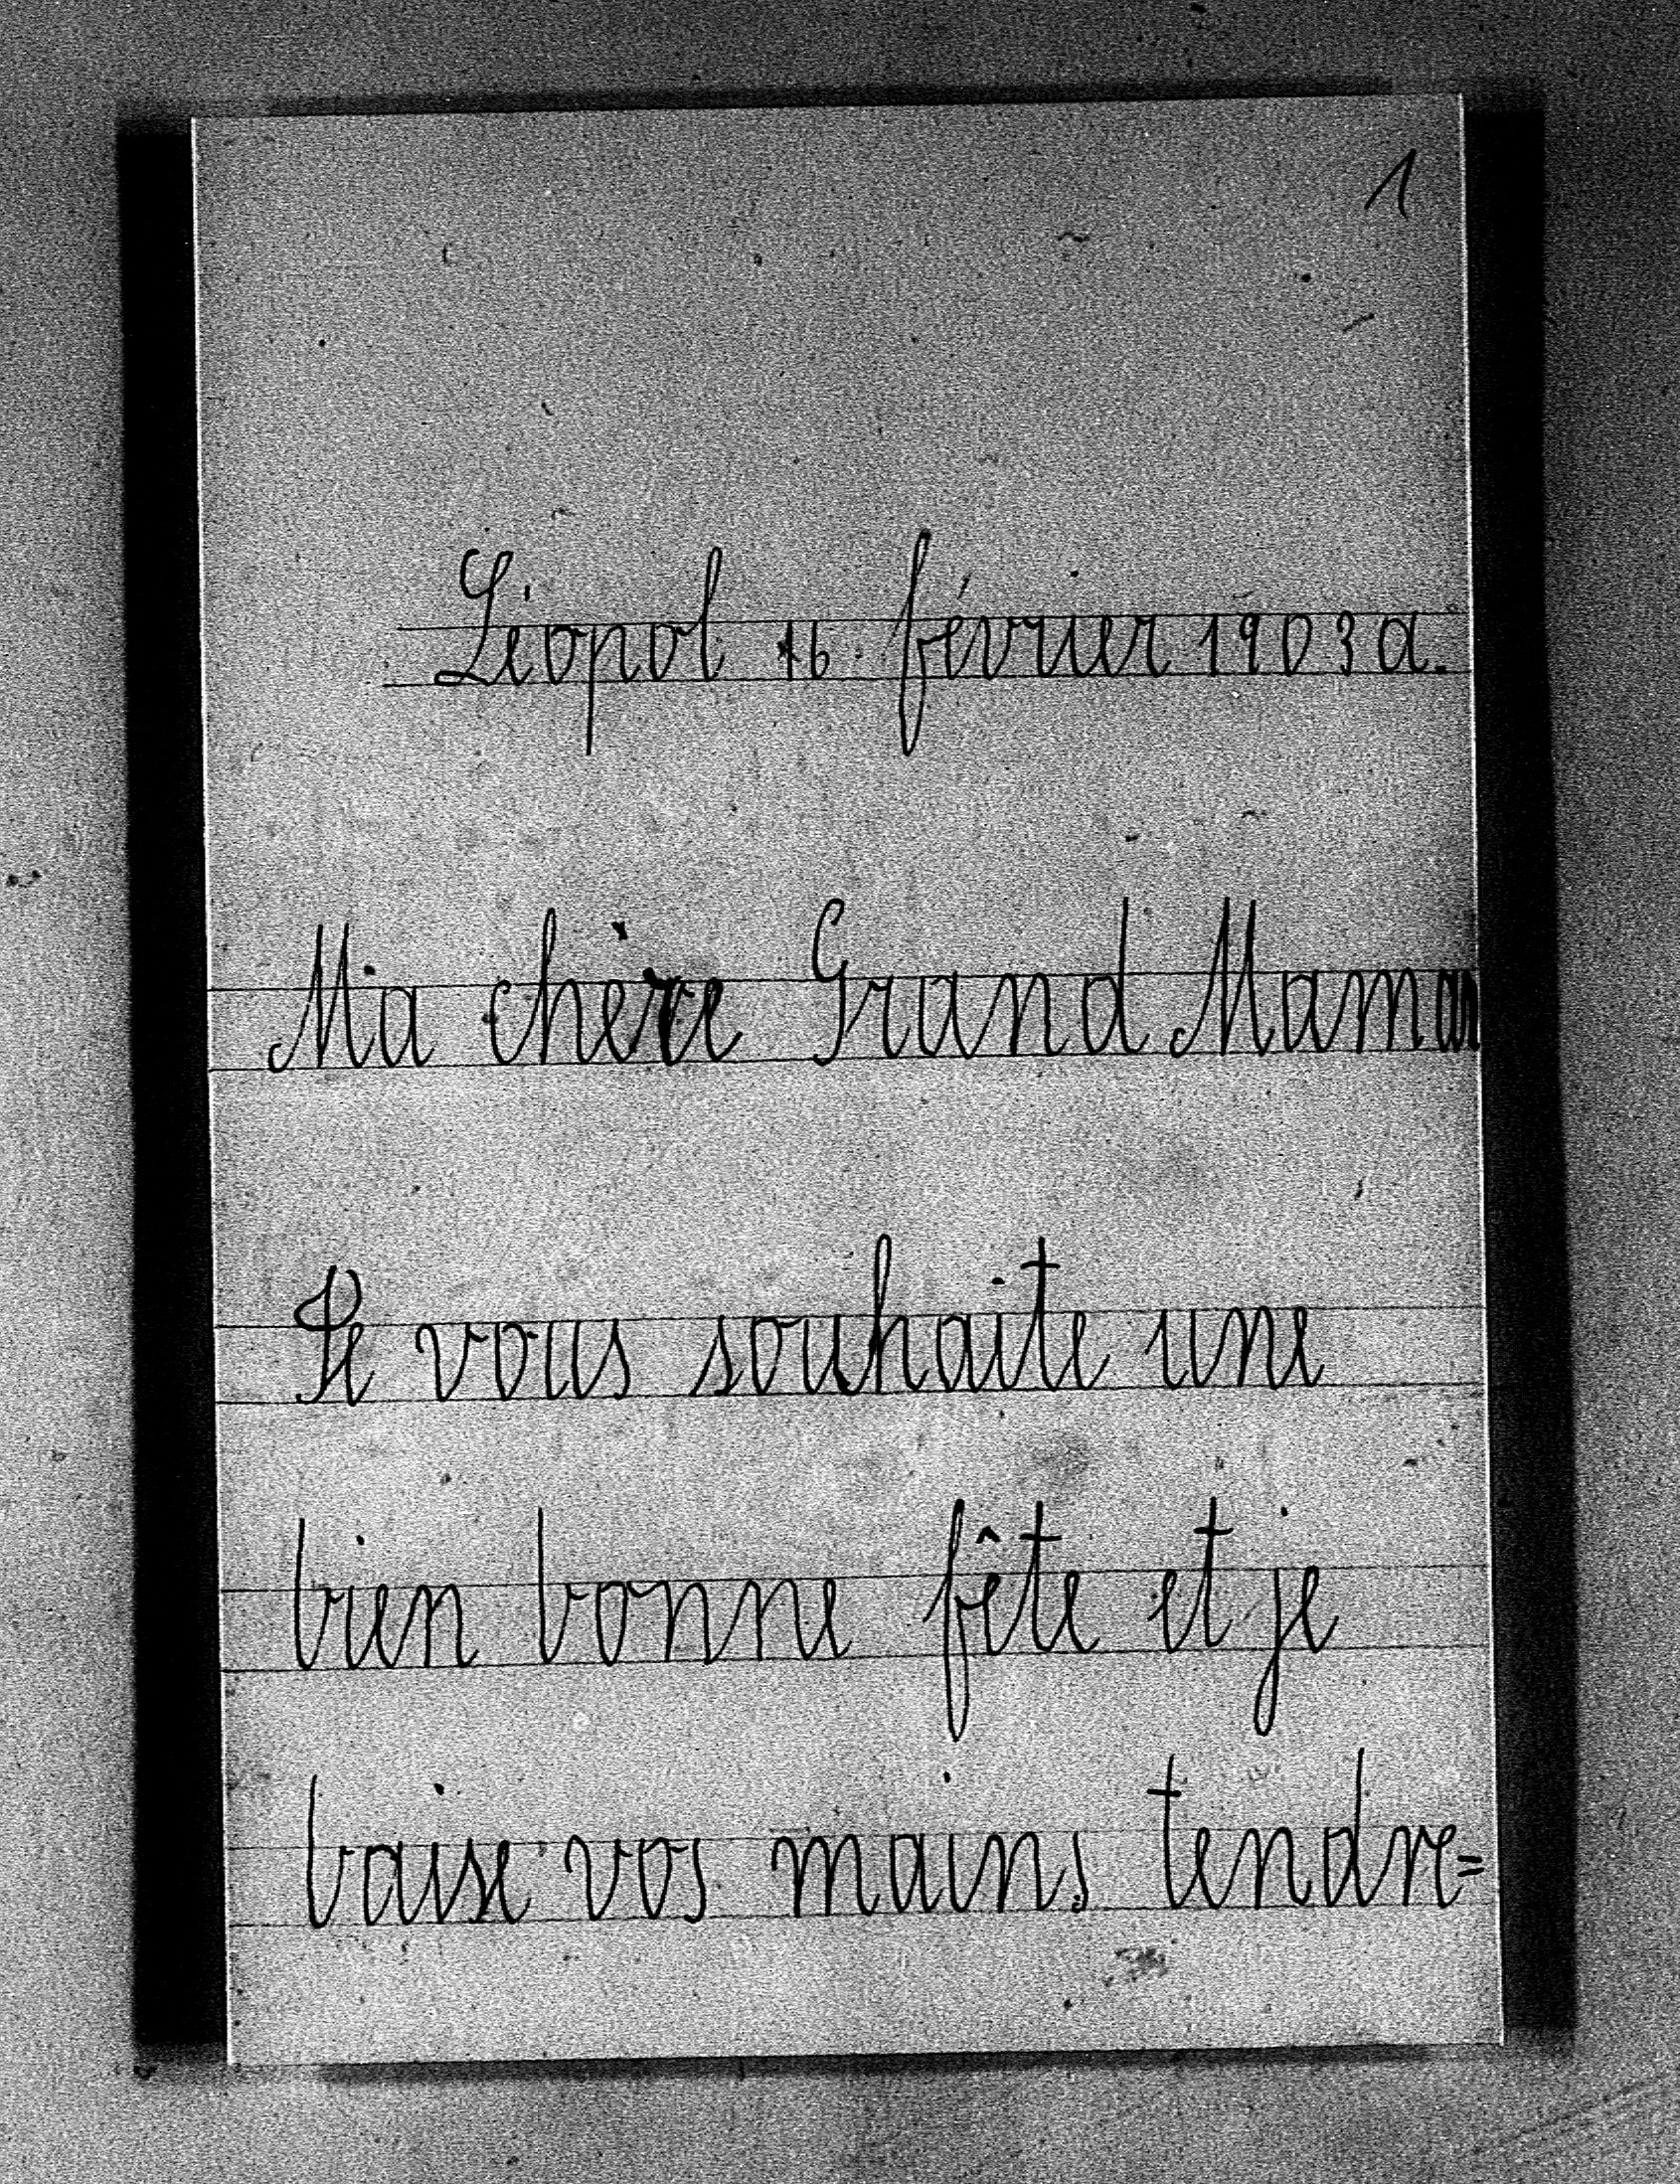 1
Léopol 16 février 1903 a.
Ma chère Grand Maman
Je vous souhaite une
bien bonne fête et je
baise vos mains tendre=